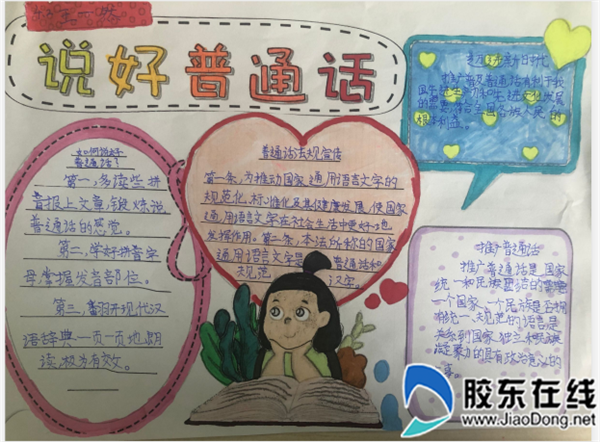 说好普通话
如何说好
普通话？
第一，多读些拼
音报上文章，锻炼说
普通话的感觉。
第二，学好拼音字
母掌握发音部位。
第三，翻开现代汉
语辞典一页一页地朗
读，极为有效。
普通话法规宣传
第一条，为推动国家通用语言文字的
规范化、标准化及其健康发展，使国家
通用语言文字在社会生活中更好地
发挥作用。第二条，本法所称的国家
通用语言文字是普通话和
规范汉字。
迈好新时代
推广普及普通话有利于我
国先进生产力和先进文化发展
的需要，符合全国各族人民的
根本利益。
推广普通话
推广普通话是国家
统一和民族团结的需要
一个国家，一个民族是否拥
有统一、规范的语言是
关系到国家独立和民族
凝聚力的具有政治意义的
事。
胶东在线
www.JiaoDong.net